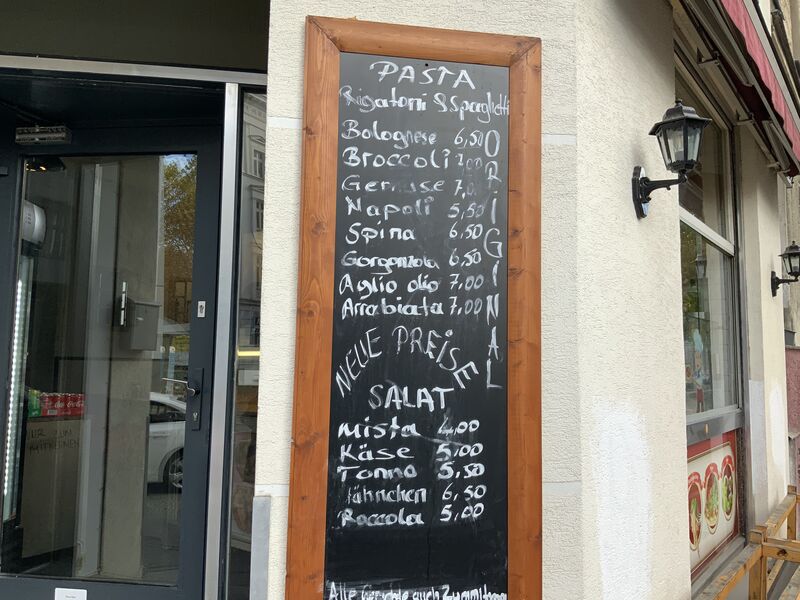 PASTA
Rigatoni & Spaghetti
Bolognese 6,50
Broccoli 7,00
Gemüse 7,00
Napoli 5,50
Spina 6,50
Gorgonzola 6,50
Aglio olio 7,00
Arrabiata 7,00
ORIGINAL
NEUE PREISE
SALAT
Mista 4,00
Käse 5,00
Tonno 5,50
Hähnchen 6,50
Roccola 5,00
Alle Gerichte auch zum
NUR ZUM